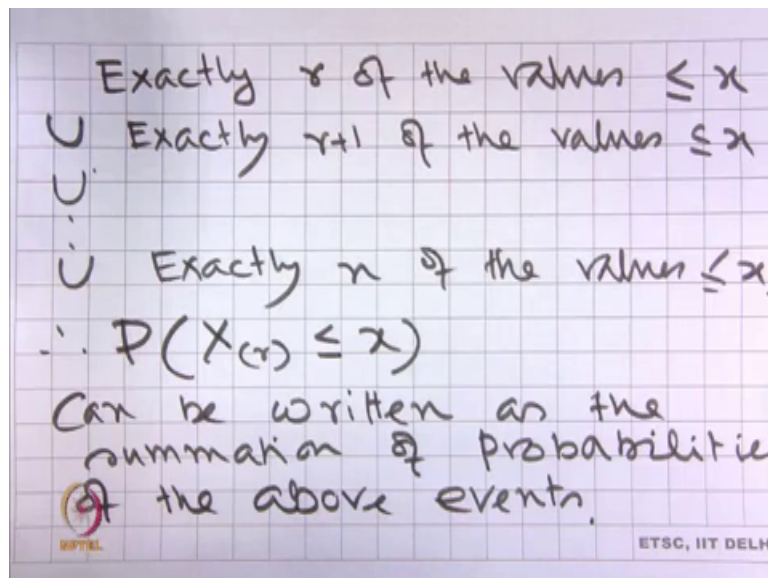 Exactly r of the values ≤ x
∪ Exactly r+1 of the values ≤ x
∪
⋮
∪ Exactly n of the values ≤ x
∴ P(X(r) ≤ x)
Can be written as the
summation of probabilitie
of the above events.
NPTEL
ETSC, IIT DELH